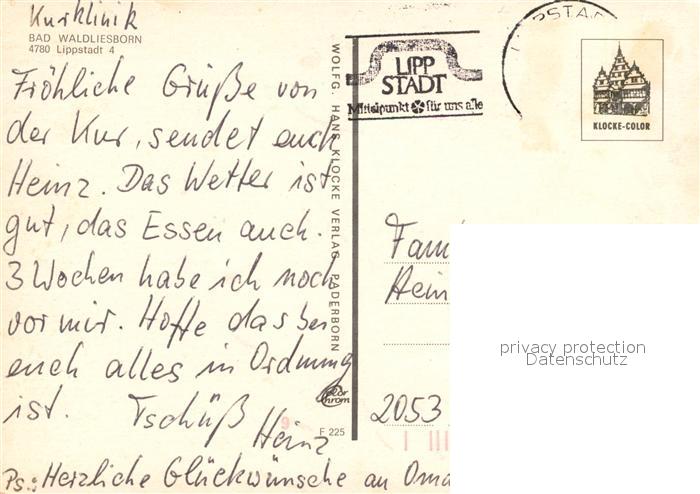 Kurklinik
BAD WALDLIESBORN
4780 Lippstadt 4
Fröhliche Grüße von
der Kur, sendet euch
Heinz. Das Wetter ist
gut, das Essen auch.
3 Wochen habe ich noch
vor mir. Hoffe das bei
euch alles in Ordnung
ist. Tschüß
Heinz
Ps.: Herzliche Glückwünsche an Oma
WOLFG. HANS KLOCKE VERLAG PADERBORN
F 225
LIPP
STADT
Mittelpunkt für uns alle
KLOCKE-COLOR
Fam
Hein
2053
privacy protection
Datenschutz